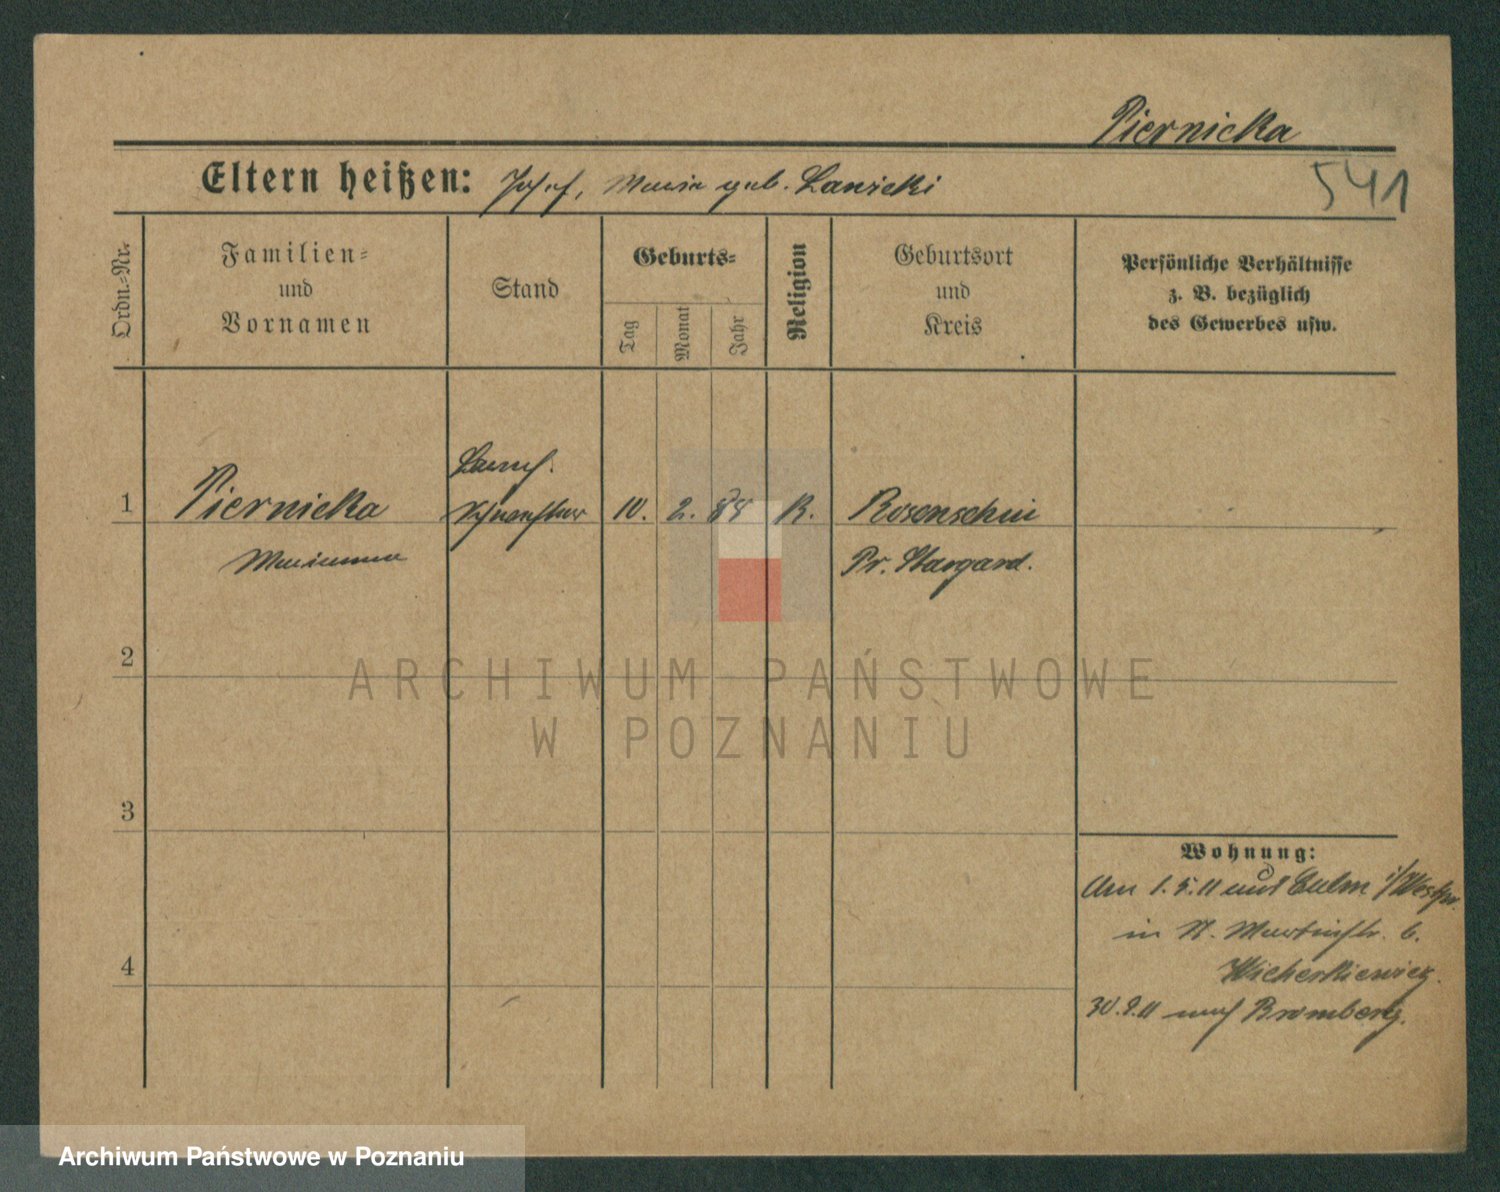 Piernicka
541
Eltern heißen: Josef, Maria geb. Lanicki
Ordn.-Nr.
Familien-
und
Vornamen
Stand
Geburts-
Tag
Monat
Jahr
Religion
Geburtsort
und
Kreis
Persönliche Verhältnisse
z. B. bezüglich
des Gewerbes usw.
1
Piernicka
Marianna
Barmh.
Schwester
10. 2. 88
K.
Rosenschin
Pr. Stargard.
2
3
4
Wohnung:
Am 1.5.11 aus Culm i/Westpr.
in St. Martinstr. 6.
Wicherkiewicz.
30.9.11 nach Bromberg.
ARCHIWUM PAŃSTWOWE
W POZNANIU
Archiwum Państwowe w Poznaniu